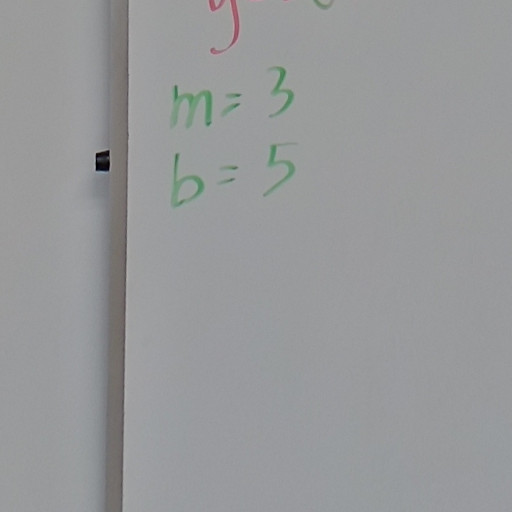 y
m = 3
b = 5